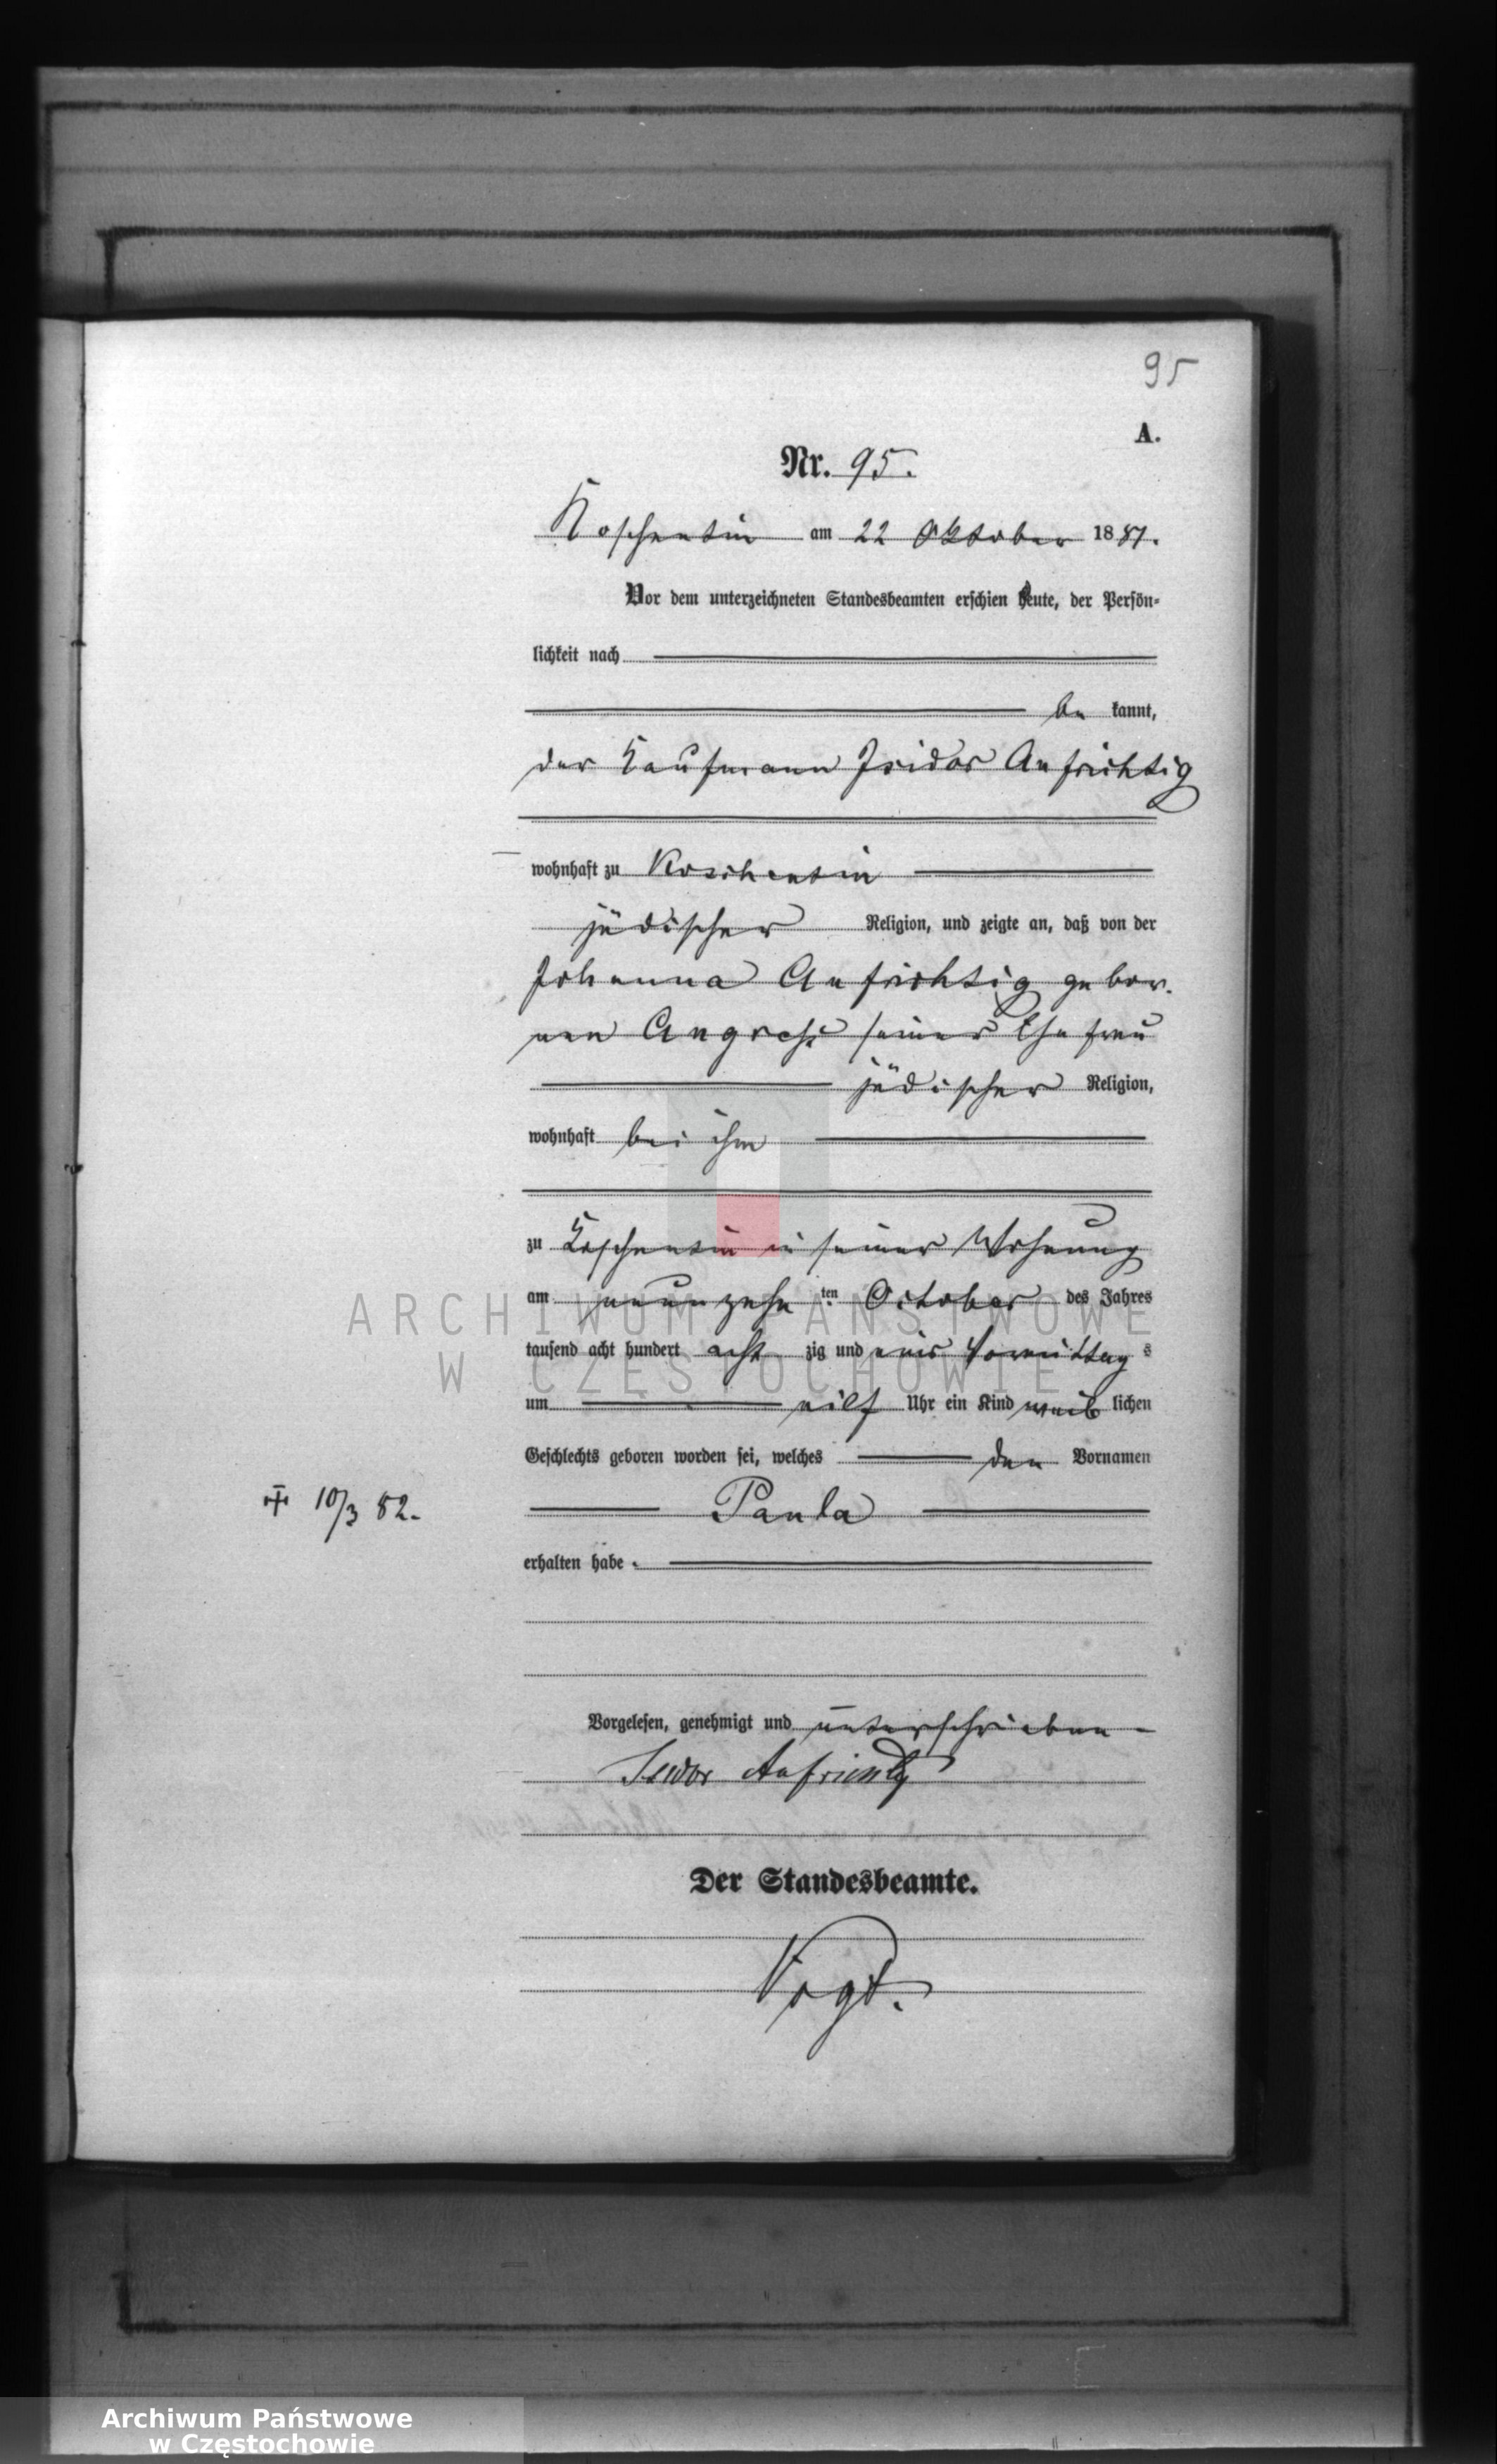 95
A.
Nr. 95.
Koschentin am 22 Oktober 1881.
Vor dem unterzeichneten Standesbeamten erschien heute, der Persön-
lichkeit nach
be kannt,
der Kaufmann Isidor Aufrichtig
wohnhaft zu Koschentin
jüdischer Religion, und zeigte an, daß von der
Johanna Aufrichtig gebor.
nen Angress seiner Ehefrau
jüdischer Religion,
wohnhaft bei ihm
zu Koschentin in seiner Wohnung
am neunzehn ten October des Jahres
tausend acht hundert acht zig und eins Vormittag s
um eilf Uhr ein Kind weib lichen
Geschlechts geboren worden sei, welches den Vornamen
+ 10/3 82.
Paula
erhalten habe.
Vorgelesen, genehmigt und unterschrieben
Isidor Aufrichtig
Der Standesbeamte.
Vogt.
ARCHIWUM PAŃSTWOWE
W CZĘSTOCHOWIE
Archiwum Państwowe
w Częstochowie